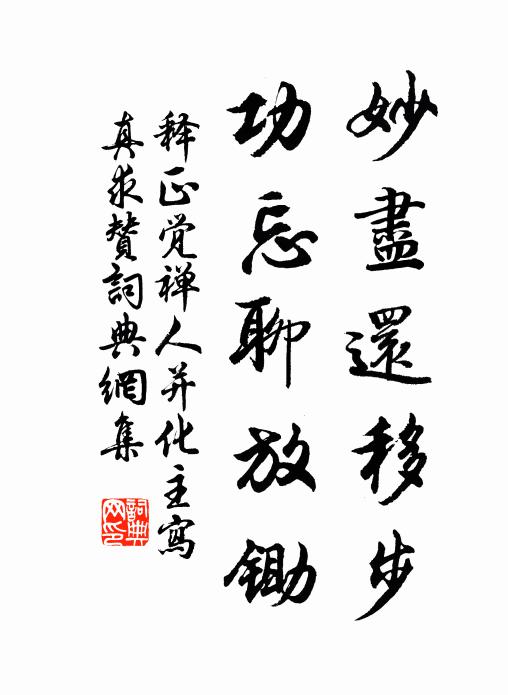 妙盡還移步
功忘聊放鋤
释正觉禅人并化主寫
真求賛詞典網集
詞典
网印